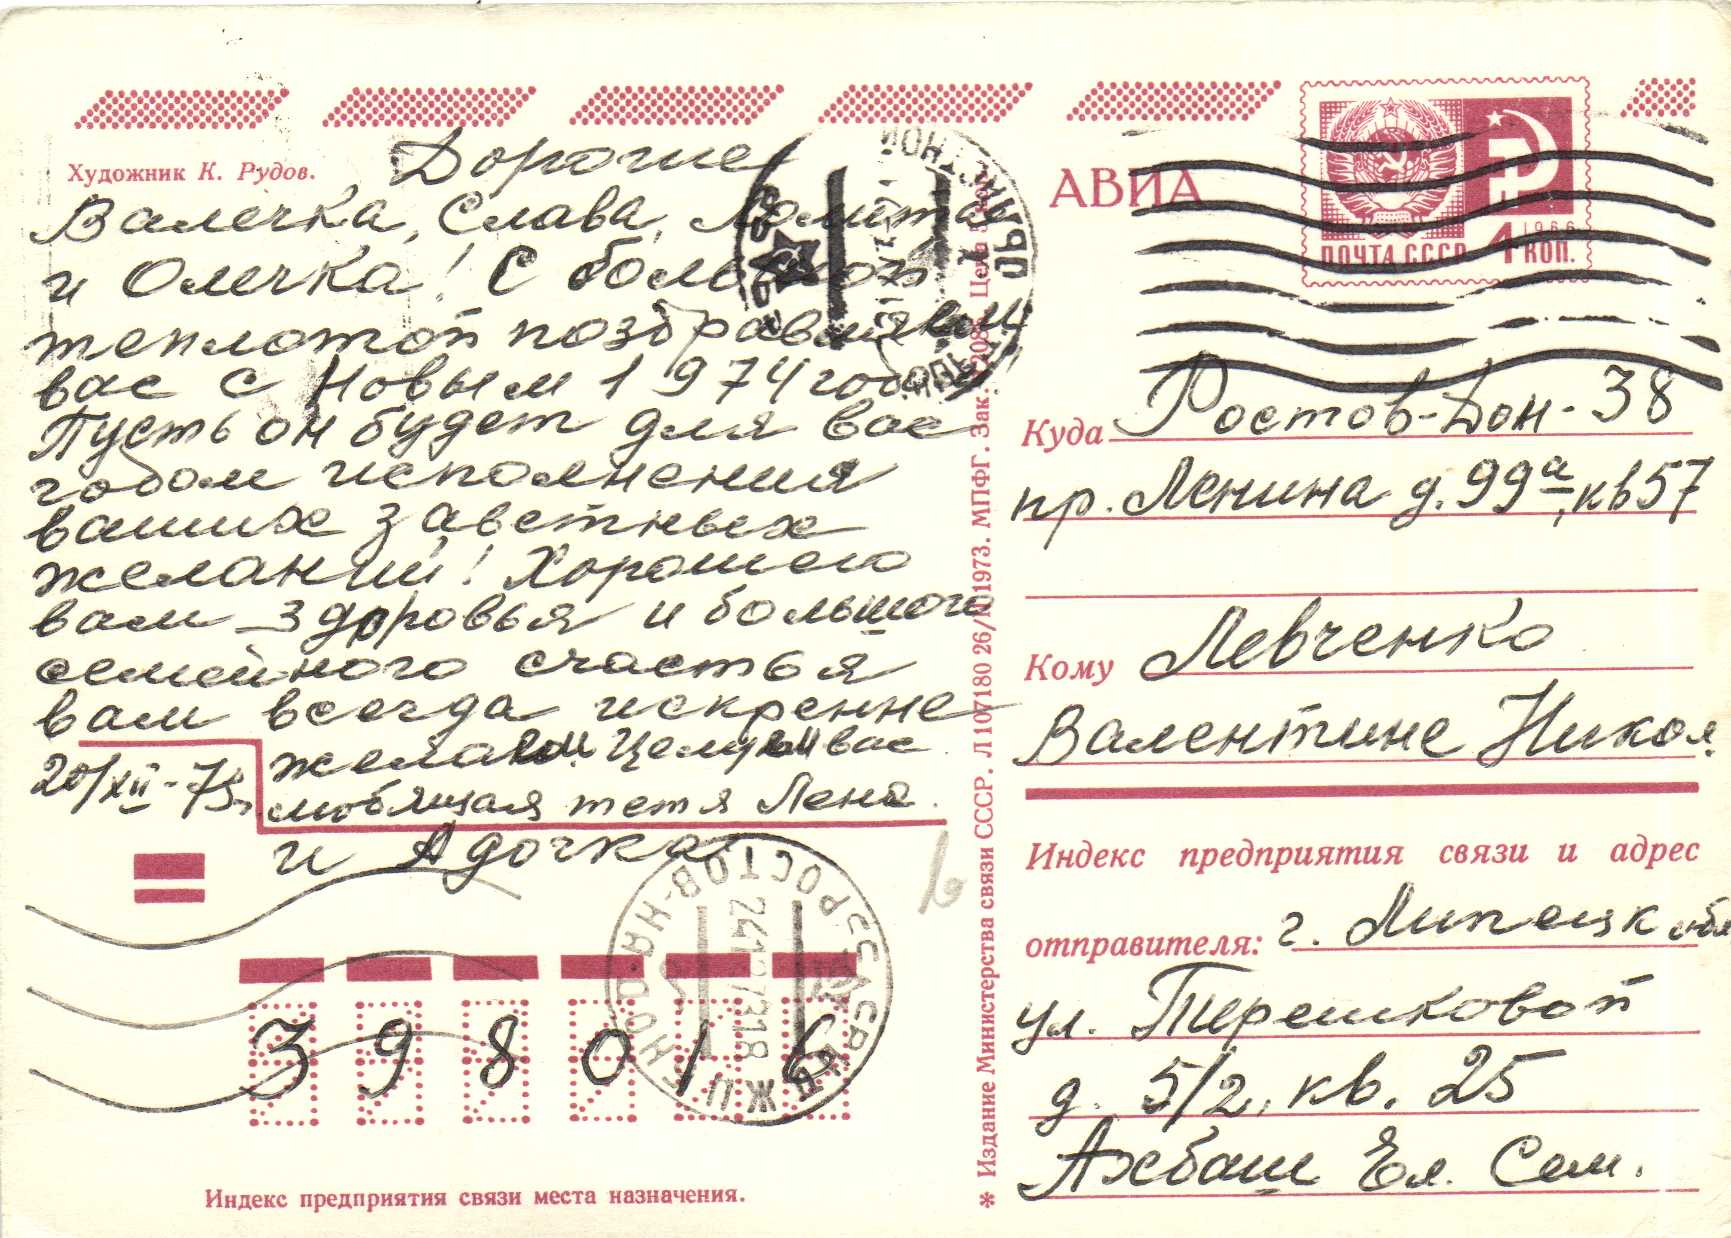 Художник К. Рудов.
Дорогие
Валечка, Слава, Лолита
и Олечка! С большой
теплотой поздравляем
вас с Новым 1974 годом!
Пусть он будет для вас
годом исполнения
ваших заветных
желаний! Хорошего
вам здоровья и большого
семейного счастья
вам всегда искренне
желаем. Целуем вас
20/XII-73г. любящая тетя Лена.
и Адочка
398016
Индекс предприятия связи места назначения.
* Издание Министерства связи СССР. Л 107180 26/XI 1973. МПФГ. Зак.
АВИА
ПОЧТА СССР
1966
4 КОП.
Куда Ростов-Дон-38
пр. Ленина д. 99а, кв 57
Кому Левченко
Валентине Никол.
Индекс предприятия связи и адрес
отправителя: г. Липецк обл
ул. Терешковой
д. 5/2, кв. 25
Ахбаш Ел. Сем.
РОСТОВ-НА-ДОНУ